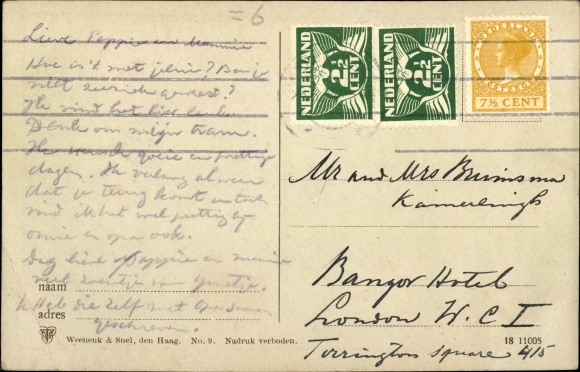 = 6
Lieve Pappie en Mammie
Hoe is't met jelui? Ben je
niet zeeziek geweest?
Ik vind het hier leuk.
Denk om mijn
goeie en prettige
dagen. Ik verlang al weer
dat je terug komt en toch
vind ik het wel prettig bij
omie en opa ook.
Dag lieve Pappie en mammie
veel zoentjes van
Ik Heb die zelf met Opa samen
geschreven.
naam
adres
NEDERLAND
2½
CENT
NEDERLAND
2½
CENT
NEDERLAND
7½ CENT
Mr and Mrs Bruinsma
Kamerlingh
Bangor Hotel
London W. C I
Torrington Square 415
Weenenk & Snel, den Haag. No. 9. Nadruk verboden.
18 11005